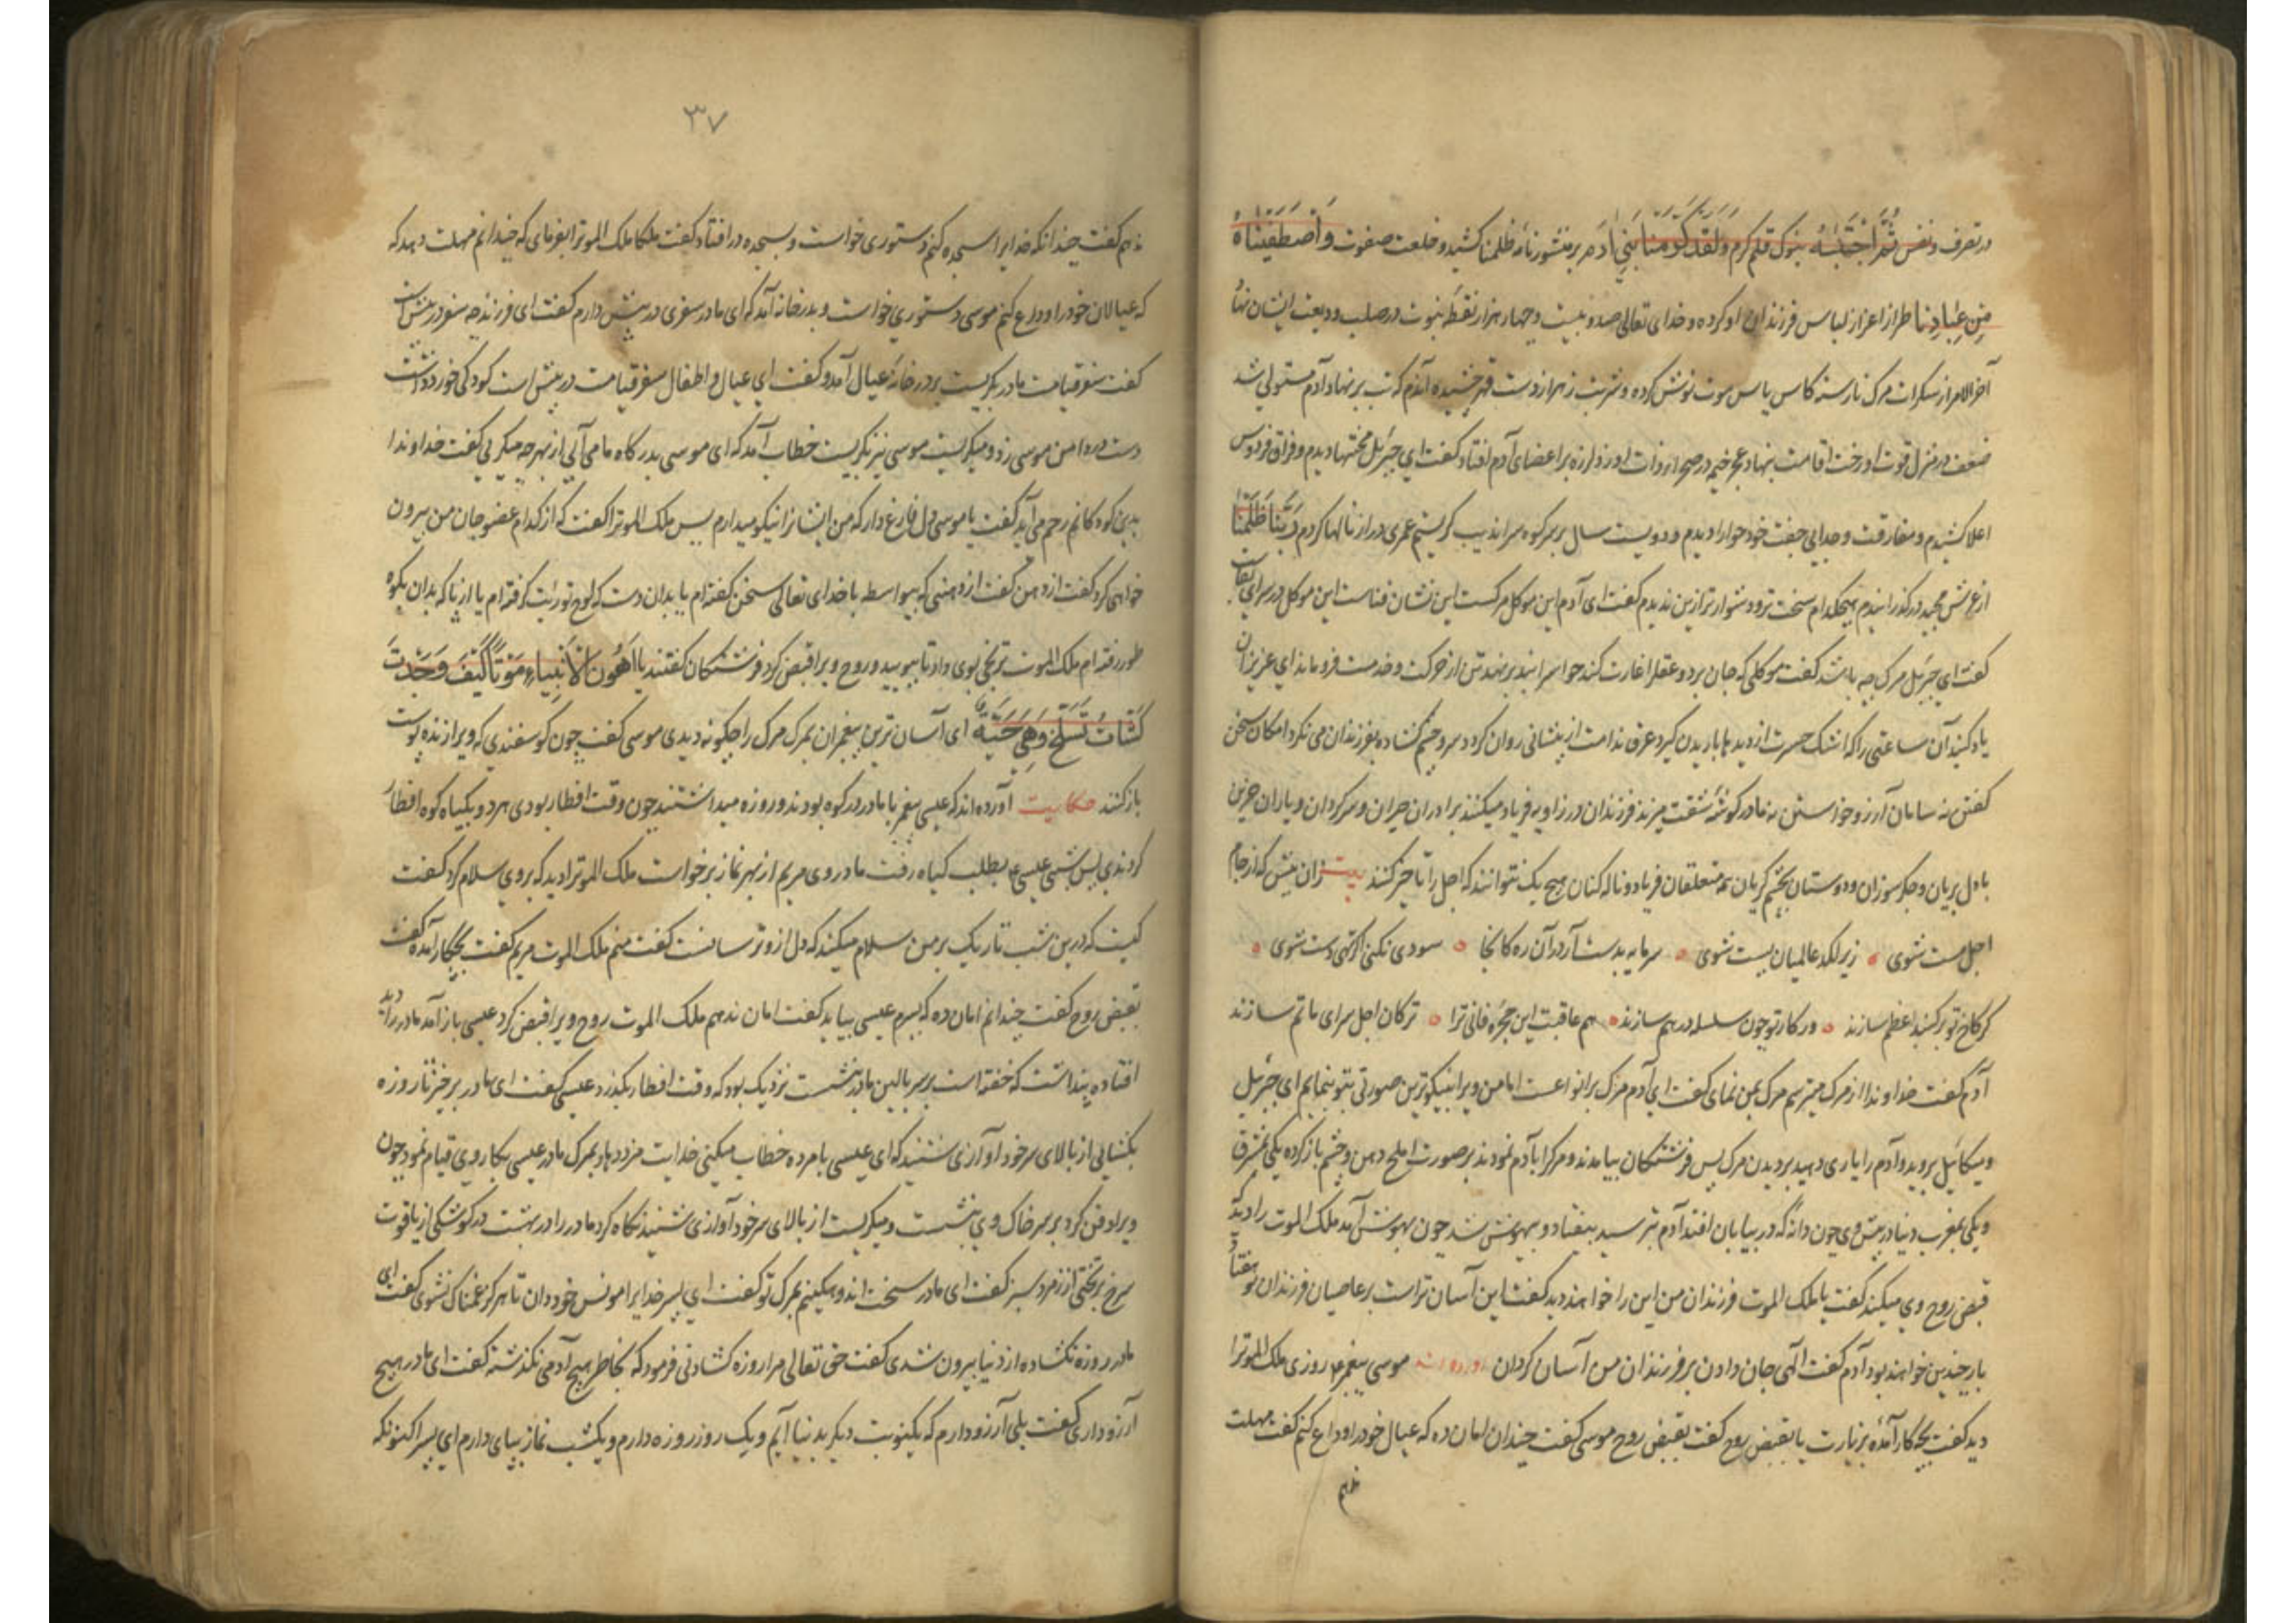 در تصرف و نفس ثُمَّ اجْتَبٰهُ بنوک قلم کرم وَلَقَدْ کَرَّمْنَا بَنِی اٰدَمَ بر منشور نامه ظلمنا کشید و خلعت صفوت وَاصْطَفَیْنَاهُ
مِنْ عِبَادِنَا طراز اعزاز لباس فرزندان او کرده و خدای تعالی صد و بیست و چهار هزار نقطه نبوت در صلب ودیعت ایشان نهاد
آخر الامر از سکرات مرک نارسته کاس یاس موت نوش کرده و شربت زهر از دست قهر چشیده آندم که تب بر نهاد آدم مستولی شد
ضعف در منزل قوت او رخت اقامت بنهاد عجز خیمه در صحرا ذات او زد لرزه بر اعضای آدم افتاد کفت ای جبرئیل محنتها دیدم و فراق فردوس
اعلا کشیدم و مفارقت و جدایی جفت خود حوا را دیدم و دویست سال بر سر کوه سراندیب کریستم عمری دراز نالها کردم رَبَّنَا ظَلَمْنَا
از عرش مجید در کذرانیدم هیچکدام سخت تر و دشوارتر ازین ندیدم کفت ای آدم این موکل مرکست این نشان فناست این موکل در سرای بقا
کفت ای جبرئیل مرک چه باشد کفت موکلی که جان برد و عقل را غارت کند حواس را بند بر نهد تن از حرکت و خدمت فرو ماند ای عزیزان
یاد کنید آن ساعتی را که اشک حسرت از دیدها باریدن کیرد عرق ندامت از پیشانی روان کردد سر و چشم کشاده بفرزندان می نکرد امکان سخن
کفتن نه سامان آرزو خواستن نه مادر کوشه شفقت میزند فرزندان در زاویه فریاد میکنند برادران حیران و سرکردان و یاران حزین
با دل بریان و جکر سوزان و دوستان بچشم کریان همه متعلقان فریاد و ناله کنان هیچ یک نتوانند که اجل را تاخیر کنند بیت زان پیش که از جام
اجل مست شوی زیر لکد عالمیان پست شوی سرمایه بدست آر در آن ره کانجا سودی نکنی اکر تهی دست شوی
کر کاخ تو بر کنبد اعظم سازند ور کار تو چون سلسله در هم سازند هم عاقبت این حجره فانی ترا ترکان اجل سرای ماتم سازند
آدم کفت خداوندا از مرک میترسم مرک بمن نمای کفت ای آدم مرک بر انواعست اما من ویرا بنیکوترین صورتی بتو بنمایم ای جبرئیل
و میکائیل بروید و آدم را یاری دهید بر دیدن مرک پس فرشتکان بیامدند و مرک را بآدم نمودند بر صورت املح دهن و چشم باز کرده یکی بمشرق
و یکی بمغرب دنیا در پیش وی چون دانه که در بیابان افتد آدم بترسید بیفتاد و بیهوش شد چون بهوش آمد ملک الموت را دید که
قبض روح وی میکند کفت یا ملک الموت فرزندان من این را خواهند دید کفت این آسان تر است بر عاصیان فرزندان تو هفتاد
بار چندین خواهند بود آدم کفت الهی جان دادن بر فرزندان من آسان کردان آورده اند موسی پیغمبر ع روزی ملک الموترا
دید کفت بچه کار آمدهٔ بزیارت یا بقبض روح کفت بقبض روح موسی کفت چندان امان ده که عیال خود را وداع کنم کفت مهلت
ندهم
۳۷
ندهم کفت چندانکه خدایرا سجده کنم دستوری خواست و بسجده در افتاد کفت ملکا ملک الموترا بفرمای که چندانم مهلت دهد که
که عیالان خود را وداع کنم موسی دستوری خواست و بدر خانه آمد که ای مادر سفری در پیش دارم کفت ای فرزند چه سفر در پیش است
کفت سفر قیامت مادر بکریست بر در خانه عیال آمد و کفت ای عیال و اطفال سفر قیامت در پیش است کودکی خورد داشت
دست در دامن موسی زد و میکریست موسی نیز بکریست خطاب آمد که ای موسی بدرکاه ما می آیی از بهر چه میکریی کفت خداوندا
بدین کودکانم رحم می آید کفت یا موسی دل فارغ دار که من ایشانرا نیکو میدارم پس ملک الموترا کفت که از کدام عضو جان من بیرون
خواهی کرد کفت از دهن کفت از دهنی که بیواسطه با خدای تعالی سخن کفته ام یا بدان دست که لوح توریت کرفته ام یا از پا که بدان بکوه
طور رفته ام ملک الموت ترنجی بوی داد تا ببویید و روح ویرا قبض کرد فرشتکان کفتند یا اَهْوَنَ الْاَنْبِیَاءِ مَوْتًا کَیْفَ وَجَدْتَ
کَشَاتٍ تُسْلَخُ وَهِیَ حَیَّةٌ ای آسان ترین پیغمبران بمرک مرک را چکونه دیدی موسی کفت چون کوسفندی که ویرا زنده پوست
باز کنند حکایت آورده اند که عیسی پیغمبر با مادر در کوه بودند و روزه میداشتند چون وقت افطار بودی هر دو بکیاه کوه افطار
کردندی پس شبی عیسی ع بطلب کیاه رفت مادر وی مریم از بهر نماز برخواست ملک الموترا دید که بر وی سلام کرد کفت
کیست که درین شب تاریک بر من سلام میکند که دل ازو ترسانست کفت منم ملک الموت مریم کفت بچکار آمدهٔ کفت
بقبض روح کفت چندانم امان ده که پسرم عیسی بیاید کفت امان ندهم ملک الموت روح ویرا قبض کرد عیسی باز آمد مادر را دید
افتاده پنداشت که خفته است بر سر بالین مادر بنشست نزدیک بود که وقت افطار بکذرد عیسی کفت ای مادر برخیز تا روزه
بکشایی از بالای سر خود آوازی شنید که ای عیسی با مرده خطاب میکنی خدایت مزد دهاد بمرک مادر عیسی بکار وی قیام نمود چون
ویرا دفن کرد بر سر خاک وی بنشست و میکریست از بالای سر خود آوازی شنید نکاه کرد مادر را در بهشت در کوشکی از یاقوت
سرخ بر تختی از زمرد سبز کفت ای مادر سخت اندوهکینم بمرک تو کفت ای پسر خدایرا مونس خود دان تا هرکز غمناک نشوی کفت ای
مادر روزه نکشاده از دنیا بیرون شدی کفت حق تعالی مرا روزه کشادنی فرمود که بخاطر هیچ آدمی نکذشته کفت ای مادر هیچ
آرزو داری کفت بلی آرزو دارم که یکنوبت دیکر بدنیا آیم و یک روز روزه دارم و یکشب نماز بپای دارم ای پسر اکنونکه